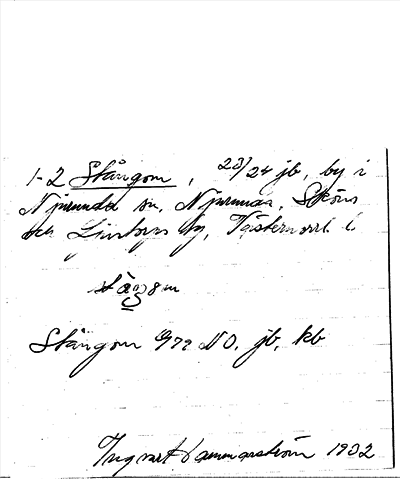 1-2 Stångom, 23/24 jb, by i
Njurunda sn, Njurunda, Sköns
och Ljustorps tg, Västernorrl. l
stångom
Stångom 972 NO. jb, kb
Ingvart Hammarström 1932